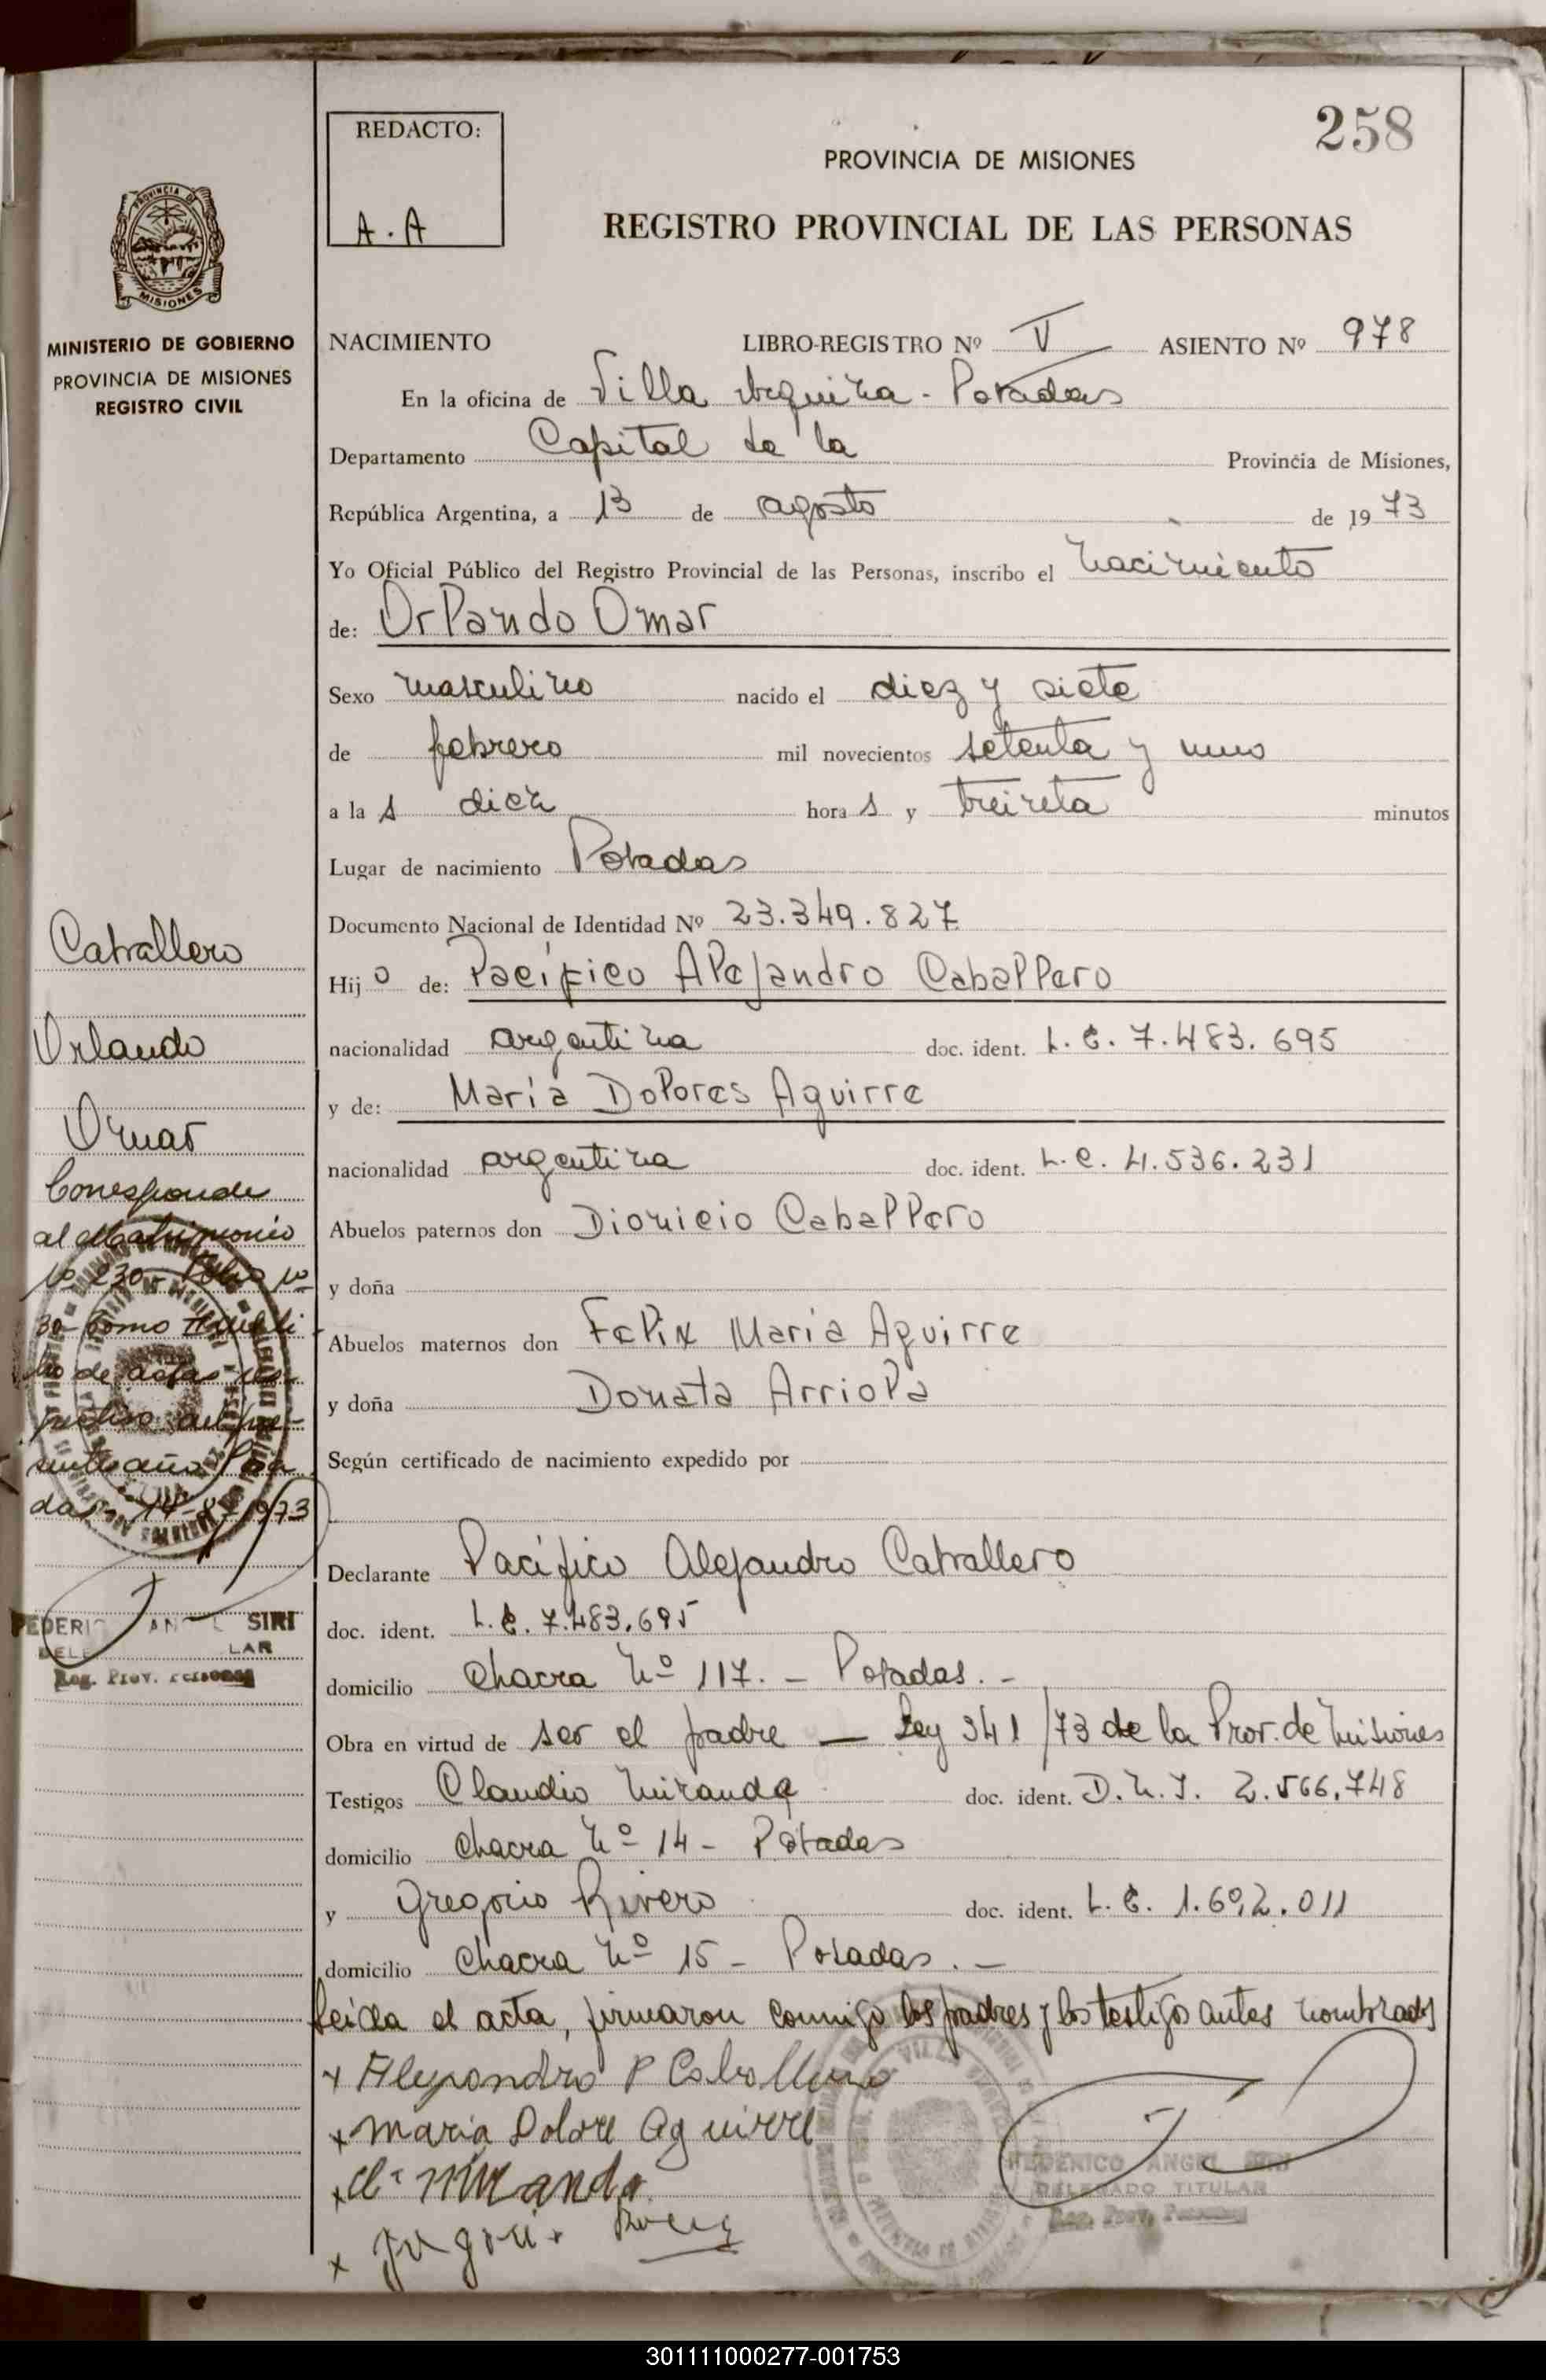 258
REDACTO:
A.A
PROVINCIA DE MISIONES
REGISTRO PROVINCIAL DE LAS PERSONAS
PROVINCIA D
MISIONES
MINISTERIO DE GOBIERNO
PROVINCIA DE MISIONES
REGISTRO CIVIL
NACIMIENTO LIBRO-REGISTRO Nº V ASIENTO Nº 978
En la oficina de Villa Urquiza - Posadas
Departamento Capital de la Provincia de Misiones,
República Argentina, a 13 de agosto de 1973
Yo Oficial Público del Registro Provincial de las Personas, inscribo el nacimiento
de: Orlando Omar
Sexo masculino nacido el diez y siete
de febrero mil novecientos setenta y uno
a la s diez hora s y treinta minutos
Lugar de nacimiento Posadas
Documento Nacional de Identidad Nº 23.349.827
Hij o de: Pacífico Alejandro Caballero
nacionalidad argentina doc. ident. L.E. 7.483.695
y de: María Dolores Aguirre
nacionalidad argentina doc. ident. L.C. 4.536.231
Abuelos paternos don Dionicio Caballero
y doña
Abuelos maternos don Felix María Aguirre
y doña Donata Arriola
Según certificado de nacimiento expedido por
Declarante Pacífico Alejandro Caballero
doc. ident. L.E. 7.483.695
domicilio Chacra Nº 117. - Posadas. -
Obra en virtud de ser el padre — Ley 341/73 de la Prov. de Misiones
Testigos Claudio Miranda doc. ident. D.N.I. 2.566.748
domicilio Chacra Nº 14 - Posadas
y Gregorio Rivero doc. ident. L.E. 1.602.011
domicilio Chacra Nº 15 - Posadas. -
Leída el acta, firmaron conmigo los padres y los testigo antes nombrados
x Alejandro P Caballero
x Maria Dolore Aguirre
x Cl Miranda
x
FEDERICO ANGEL SIRI
DELEGADO TITULAR
Reg. Prov. Personas
Caballero
Orlando
Omar
Corresponde
al Matrimonio
Nº 230 - Folio Nº
30 - Como
de actas res-
pectivo del pre-
sente año Posa
das - 14-8-1973
FEDERICO ANGEL SIRI
LAR
Reg. Prov. Personas
301111000277-001753